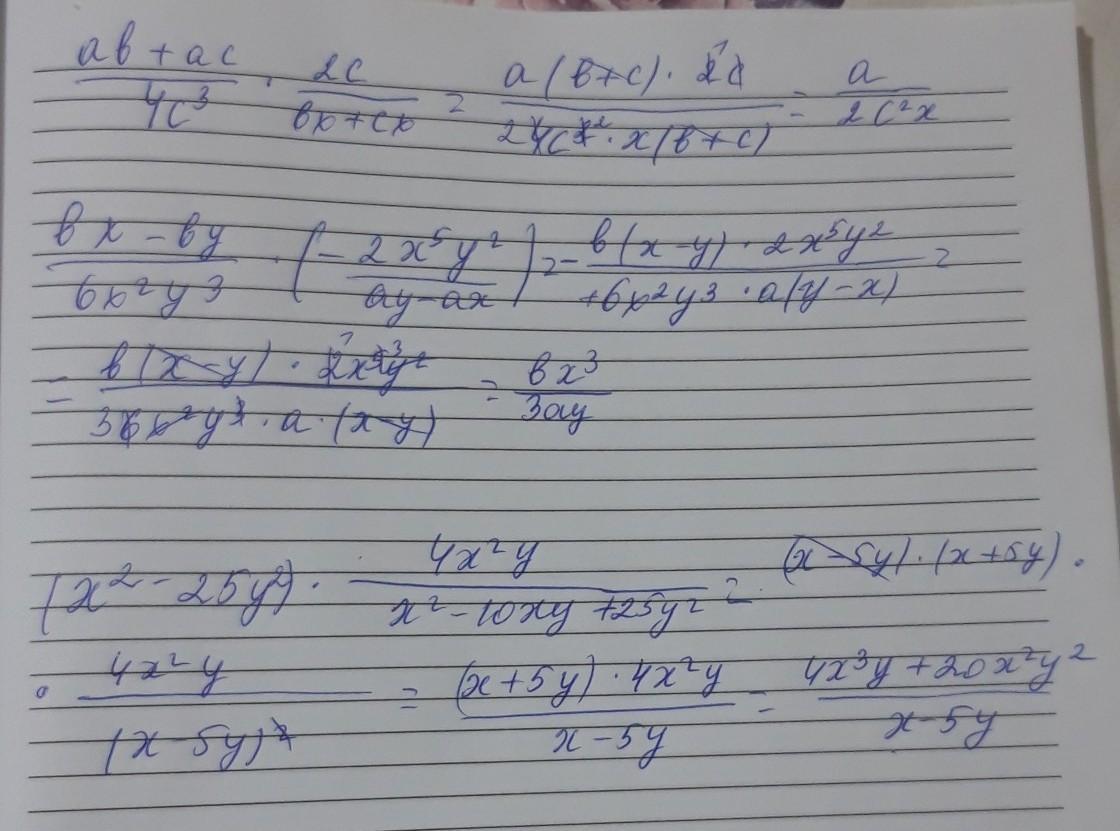 (ab + ac)/(4c³) · (2c)/(bx + cx) = (a(b+c) · 2c)/(4c³ · x(b+c)) = a/(2c²x)
(bx - by)/(6x²y³) · (- (2x⁵y²)/(ay - ax)) = - (b(x-y) · 2x⁵y²)/(+6x²y³ · a(y-x)) =
= (b(x-y) · 2x⁵y²)/(6x²y³ · a · (x-y)) = (bx³)/(3ay)
(x² - 25y²) · (4x²y)/(x² - 10xy + 25y²) = (x - 5y) · (x + 5y) ·
· (4x²y)/(x - 5y)² = ((x + 5y) · 4x²y)/(x - 5y) = (4x³y + 20x²y²)/(x - 5y)